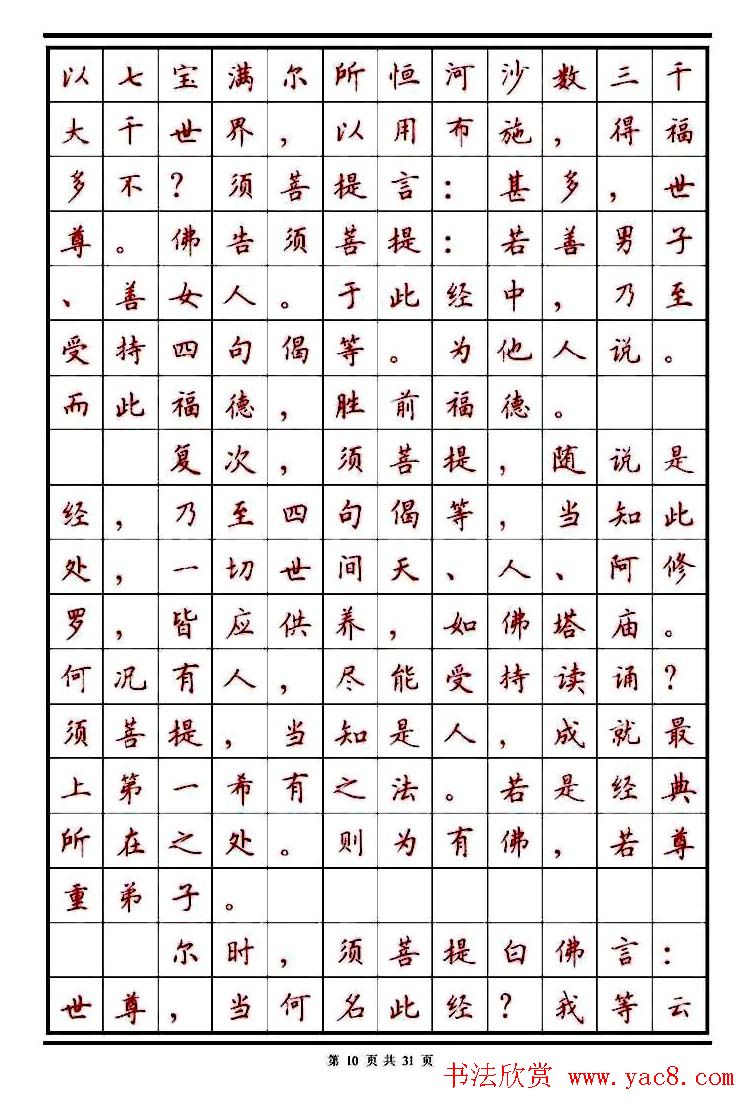 以七宝满尔所恒河沙数三千
大千世界，以用布施，得福
多不？须菩提言：甚多，世
尊。佛告须菩提：若善男子
、善女人。于此经中，乃至
受持四句偈等。为他人说。
而此福德，胜前福德。
复次，须菩提，随说是
经，乃至四句偈等，当知此
处，一切世间天、人、阿修
罗，皆应供养，如佛塔庙。
何况有人，尽能受持读诵？
须菩提，当知是人，成就最
上第一希有之法。若是经典
所在之处。则为有佛，若尊
重弟子。
尔时，须菩提白佛言：
世尊，当何名此经？我等云
第 10 页 共 31 页
书法欣赏 www.yac8.com